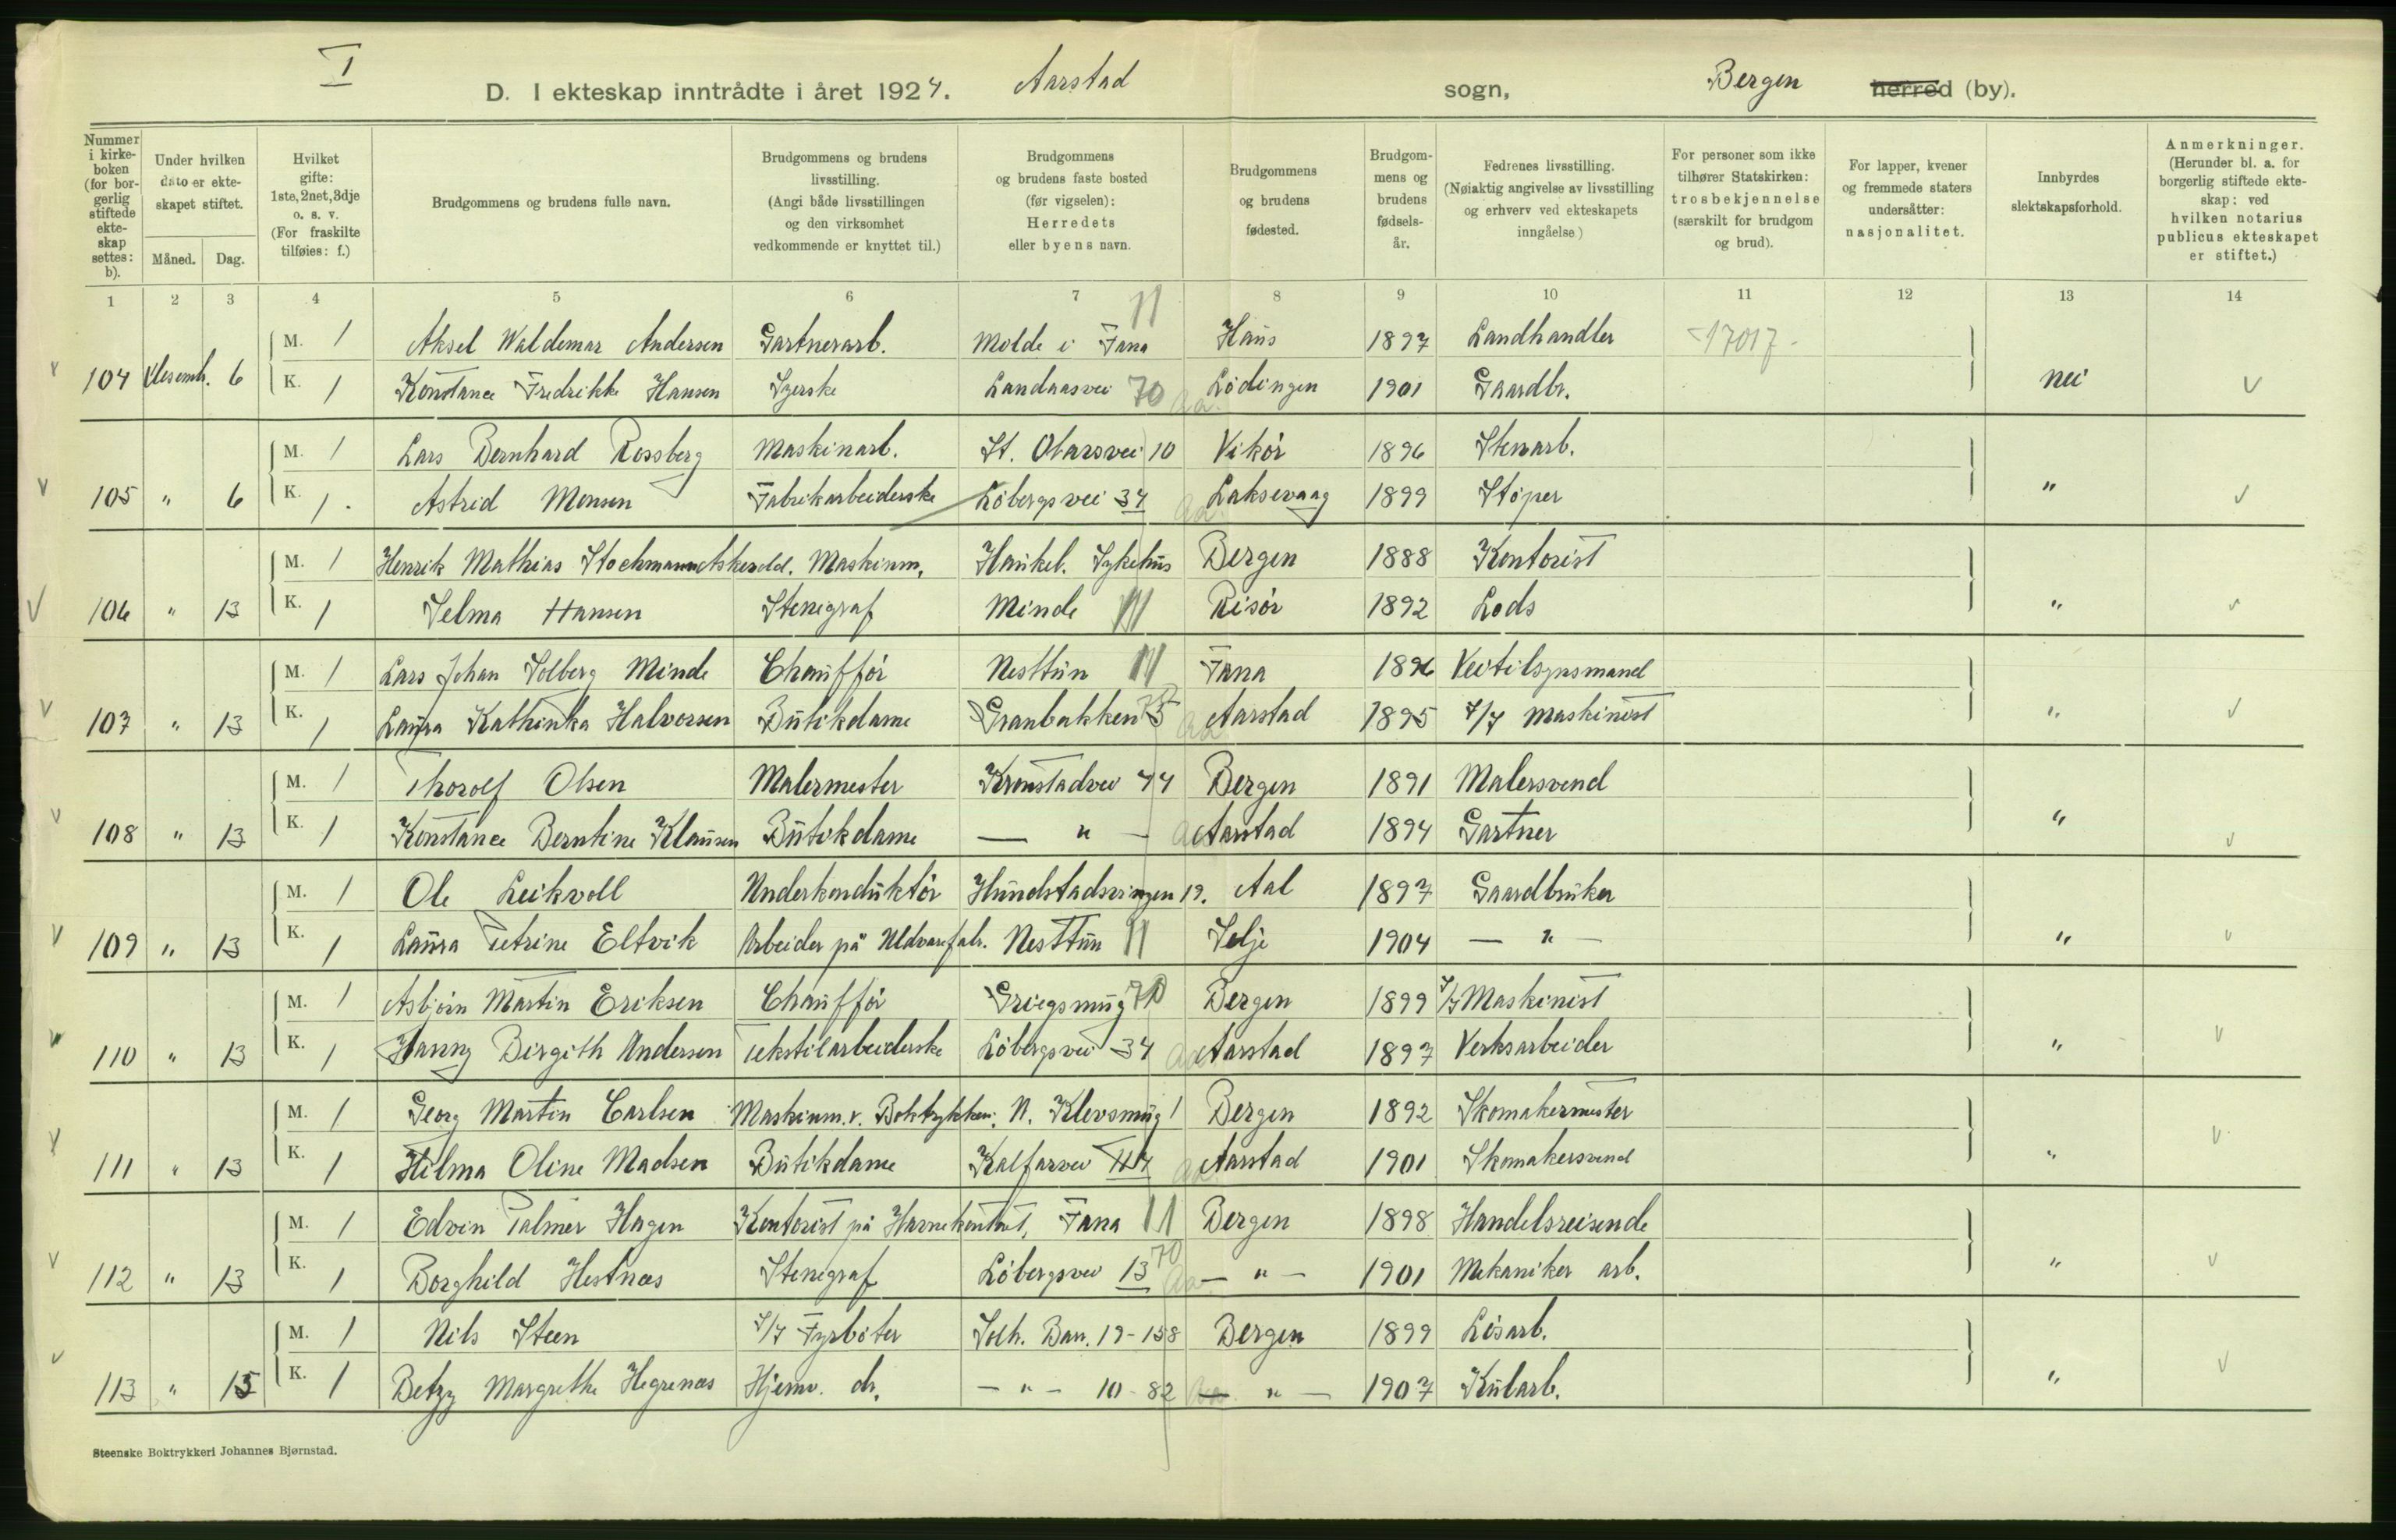 I
D. I ekteskap inntrådte i året 1924. Aarstad sogn, Bergen herred (by).
Nummer i kirkeboken (for borgerlig stiftede ekteskap settes: b).
Under hvilken dato er ekteskapet stiftet.
Måned. Dag.
Hvilket gifte: 1ste, 2net, 3dje o. s. v. (For fraskilte tilføies: f.)
Brudgommens og brudens fulle navn.
Brudgommens og brudens livsstilling. (Angi både livsstillingen og den virksomhet vedkommende er knyttet til.)
Brudgommens og brudens faste bosted (før vigselen): Herredets eller byens navn.
Brudgommens og brudens fødested.
Brudgommens og brudens fødselsår.
Fedrenes livsstilling. (Nøiaktig angivelse av livsstilling og erhverv ved ekteskapets inngåelse)
For personer som ikke tilhører Statskirken: trosbekjennelse (særskilt for brudgom og brud).
For lapper, kvener og fremmede staters undersåtter: nasjonalitet.
Innbyrdes slektskapsforhold.
Anmerkninger. (Herunder bl. a. for borgerlig stiftede ekteskap: ved hvilken notarius publicus ekteskapet er stiftet.)
1 2 3 4 5 6 7 8 9 10 11 12 13 14
M. 1 Aksel Waldemar Andersen Gartnerarb. Molde i Fana 11 Haus 1897 Landhandler 17017
104 Desemb. 6 K. 1 Konstance Fredrikke Hansen Syerske Landaasvei 70 Aa. Lödingen 1901 Gaardbr. nei
M. 1 Lars Bernhard Rossberg Maskinarb. St. Olarsvei 10 Vikör 1896 Stenarb.
105 " 6 K. 1 Astrid Monsen Fabrikarbeiderske Löbergsvei 34 Aa. Laksevaag 1899 Stöper "
M. 1 Henrik Mathias Stochmann Askevold. Maskinm. Haukel. Sykehus Bergen 1888 Kontorist
106 " 13 K. 1 Selma Hansen Stenograf Minde 11 Risör 1892 Lods "
M. 1 Lars Johan Solberg Minde Chaufför Nesttun 11 Fana 1896 Veitilsynsmand
107 " 13 K. 1 Laura Kathinka Halvorsen Butikdame Granbakken Aa Aarstad 1895 S/S Maskinist "
M. 1 Thorolf Olsen Malermester Kronstadvei 44 Bergen 1891 Malersvend
108 " 13 K. 1 Konstance Berntine Klausen Butikdame — " — Aa Aarstad 1894 Gartner "
M. 1 Ole Leikvoll Underkonduktör Hundstadsvingen 19. Aal 1897 Gaardbruker
109 " 13 K. 1 Laura Petrine Eltvik Arbeider på Uldvarefabr. Nesttun 11 Selje 1904 — " — "
M. 1 Asbjörn Martin Eriksen Chaufför Griegsmug Bergen 1899 S/S Maskinist
110 " 13 K. 1 Hanny Birgith Andersen Tekstilarbeiderske Löbergsvei 34 Aa Aarstad 1897 Verksarbeider "
M. 1 Georg Martin Carlsen Maskinm. v. Boktrykkeri. N. Klevsmug 1 Bergen 1892 Skomakermester
111 " 13 K. 1 Hilma Oline Madsen Butikdame Kalfarvei Aa Aarstad 1901 Skomakersvend "
M. 1 Edvin Palmer Hagen Kontorist på Havnekontoret, Fana 11 Bergen 1898 Handelsreisende
112 " 13 K. 1 Borghild Hestnæs Stenograf Löbergsvei 13 70 Aa. — " — 1901 Mekaniker arb. "
M. 1 Nils Steen S/S Fyrböter Solh. Bar. 19-158 Bergen 1899 Lösarb.
113 " 15 K. 1 Betzy Margrethe Hegrenæs Hjemv. dr. — " — 10-82 Aa. — " — 1907 Kularb. "
Steenske Boktrykkeri Johannes Bjørnstad.